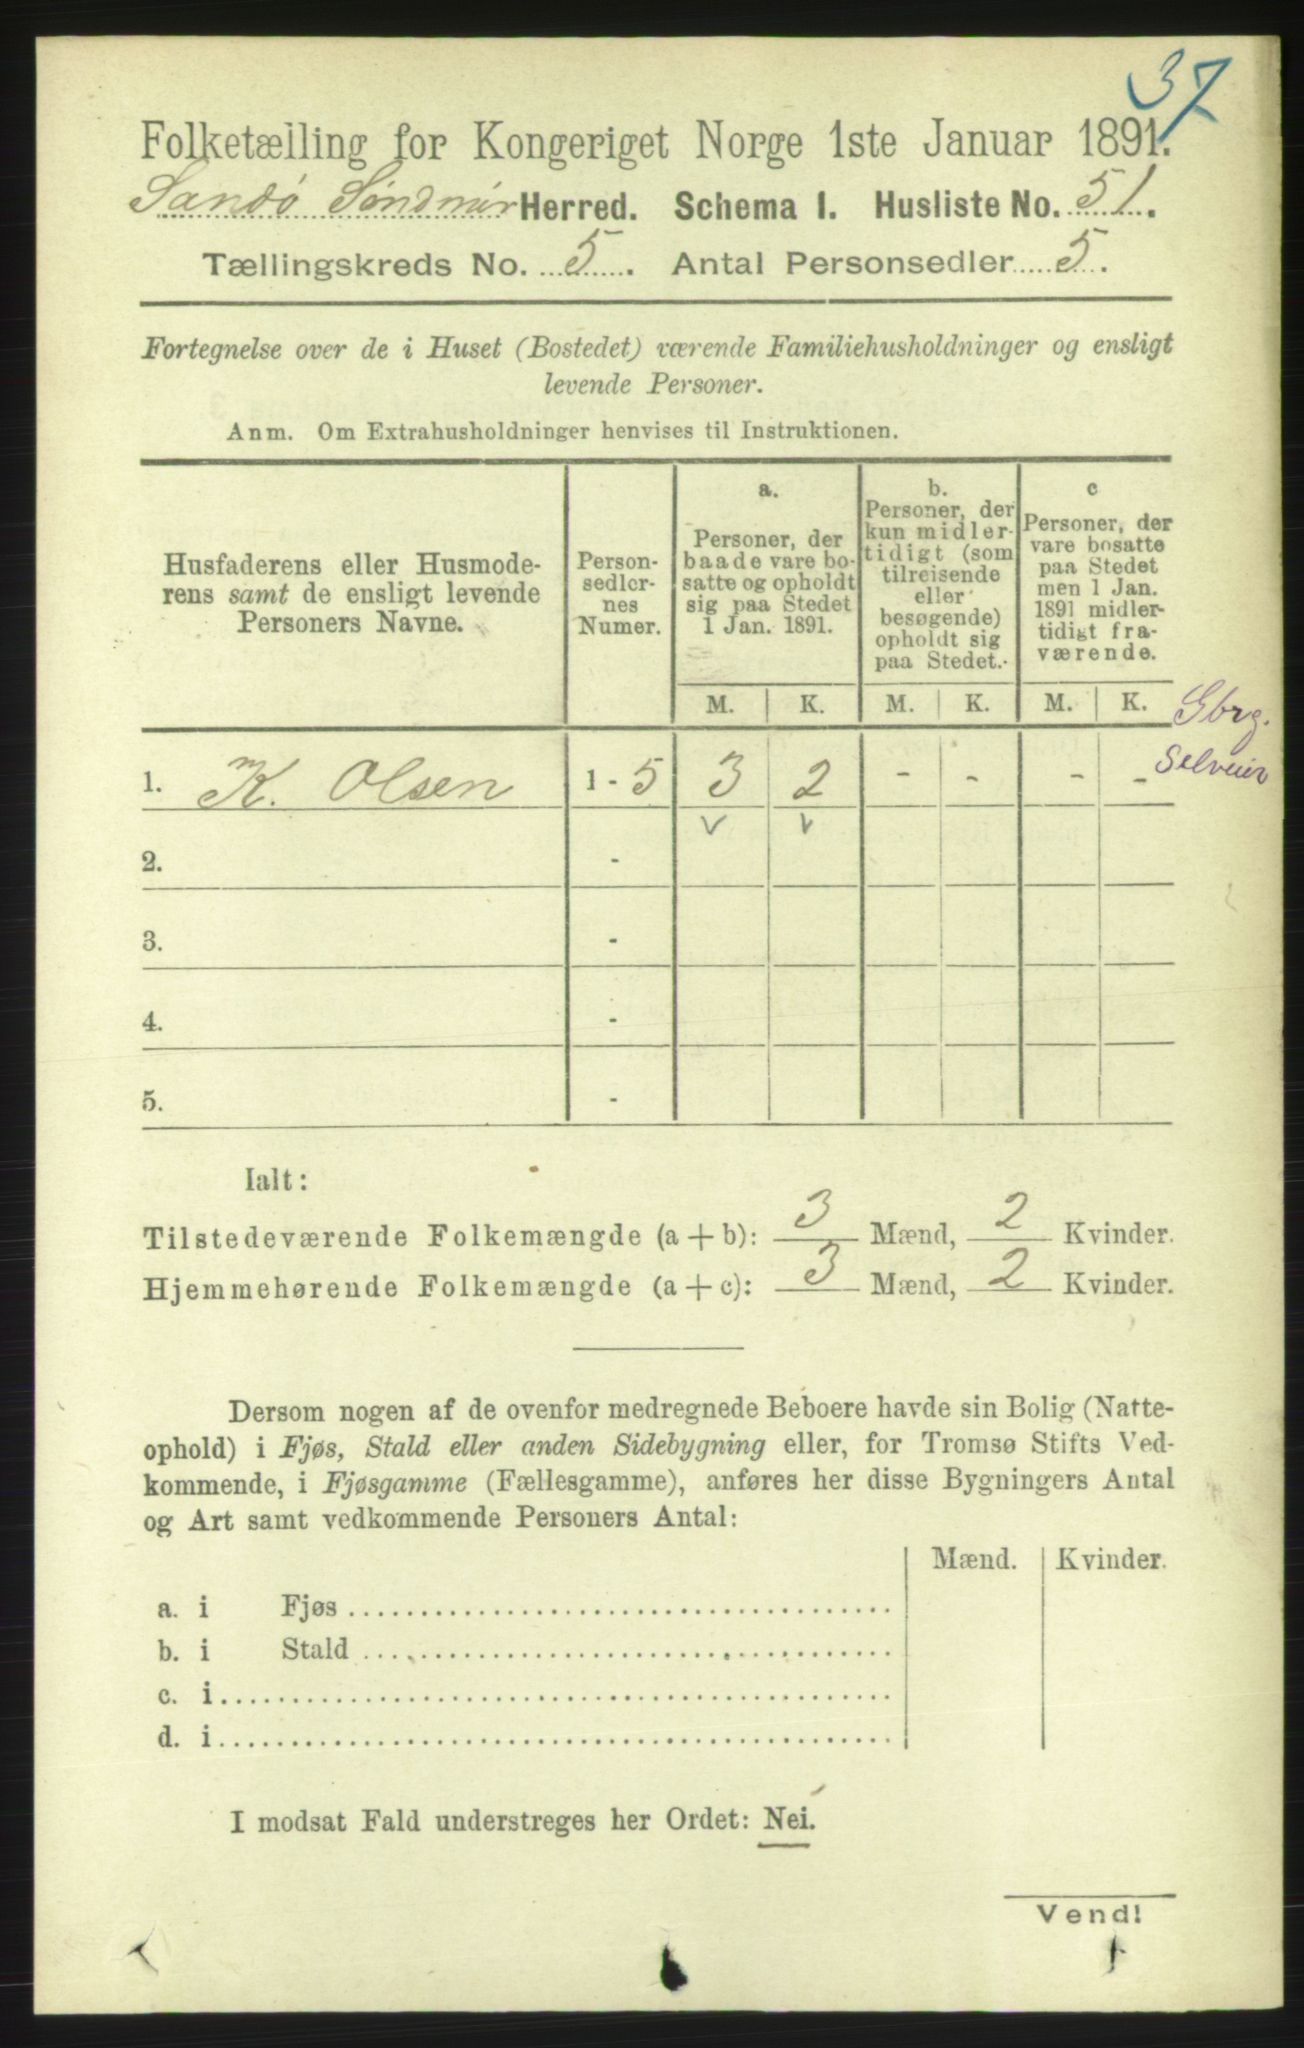 37
Folketælling for Kongeriget Norge 1ste Januar 1891.
Sandø Søndmør Herred. Schema 1. Husliste No. 51.
Tællingskreds No. 5. Antal Personsedler 5.
Fortegnelse over de i Huset (Bostedet) værende Familiehusholdninger og ensligt
levende Personer.
Anm. Om Extrahusholdninger henvises til Instruktionen.
Husfaderens eller Husmode-
rens samt de ensligt levende
Personers Navne.
Person-
sedler-
nes
Numer.
a.
Personer, der
baade vare bo-
satte og opholdt
sig paa Stedet
1 Jan. 1891.
b.
Personer, der
kun midler-
tidigt (som
tilreisende
eller
besøgende)
opholdt sig
paa Stedet.
c
Personer, der
vare bosatte
paa Stedet
men 1 Jan.
1891 midler-
tidigt fra-
værende.
M. K. M. K. M. K.
Gbrg.
Selveier
1. K. Olsen 1 - 5 3 2 - - - -
2. -
3. -
4. -
5. -
Ialt:
Tilstedeværende Folkemængde (a + b): 3 Mænd, 2 Kvinder.
Hjemmehørende Folkemængde (a + c): 3 Mænd, 2 Kvinder.
Dersom nogen af de ovenfor medregnede Beboere havde sin Bolig (Natte-
ophold) i Fjøs, Stald eller anden Sidebygning eller, for Tromsø Stifts Ved-
kommende, i Fjøsgamme (Fællesgamme), anføres her disse Bygningers Antal
og Art samt vedkommende Personers Antal:
Mænd. Kvinder.
a. i Fjøs
b. i Stald
c. i
d. i
I modsat Fald understreges her Ordet: Nei.
Vend!